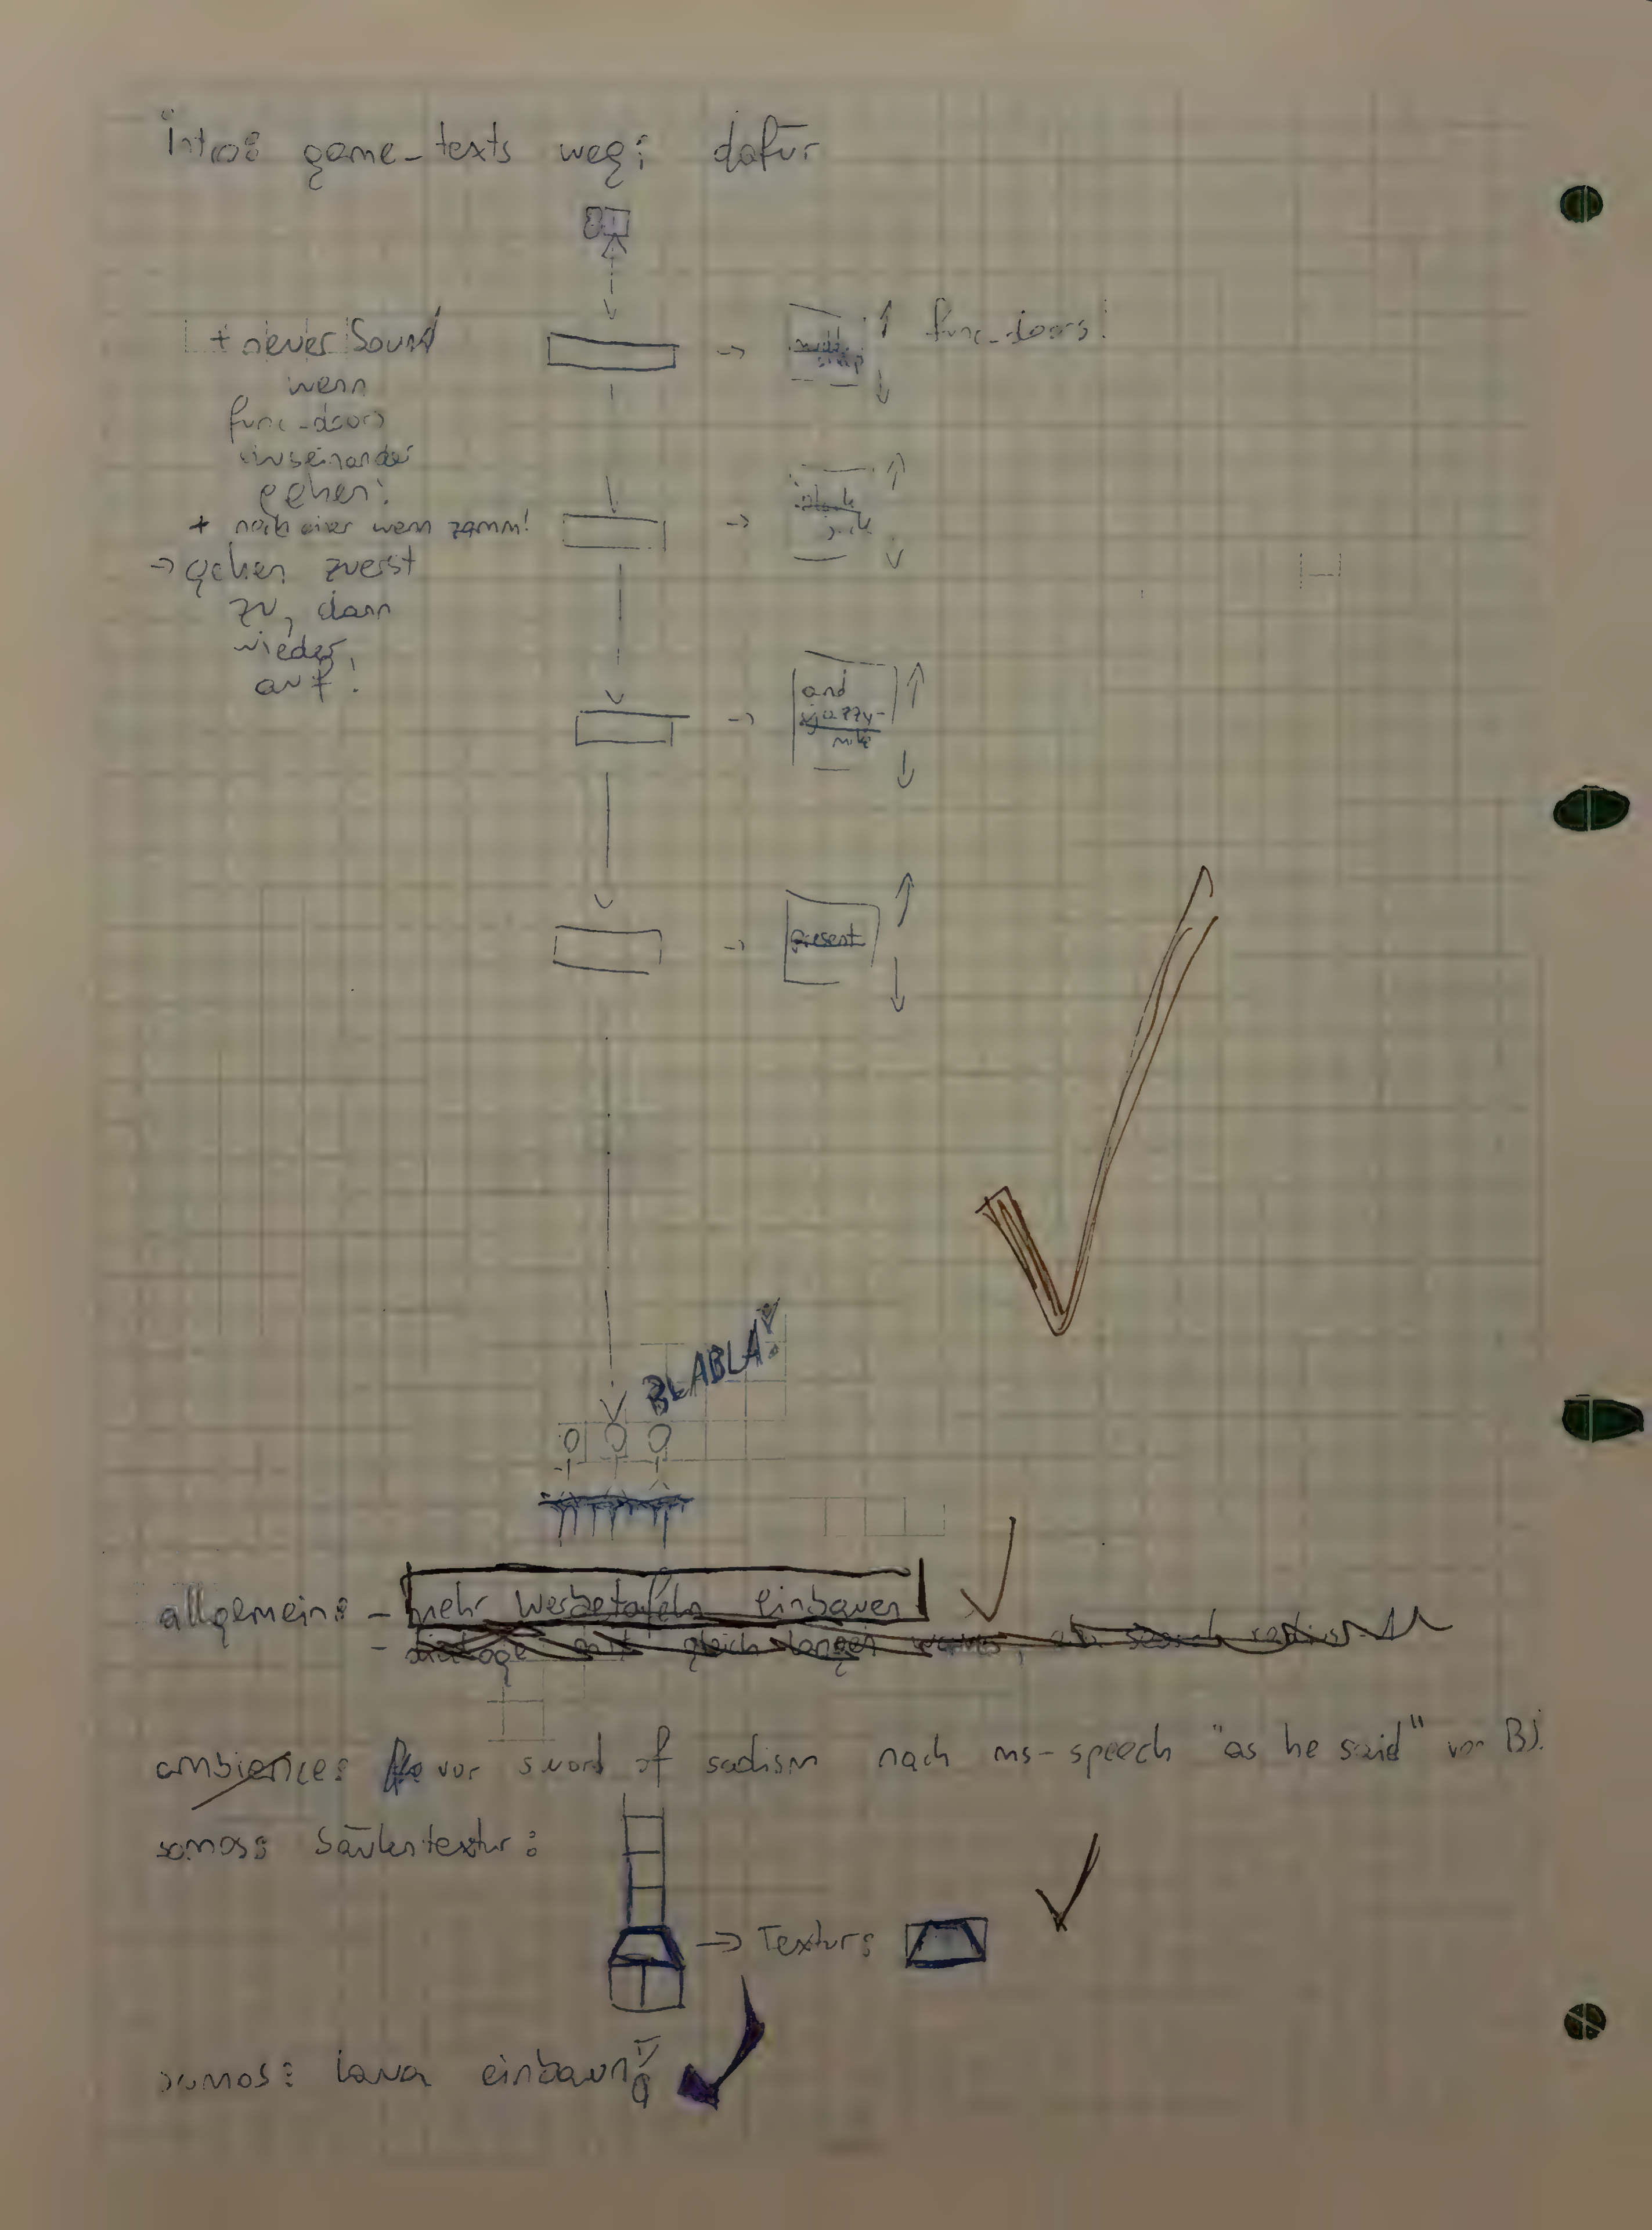 Intro: game_texts weg; dafür
+ neuer Sound
wenn
func_doors
auseinander
gehen!
+ noch einer wenn zamm!
-> gehen zuerst
zu, dann
wieder
auf!
func_doors!
and
jazzy-
mike
present
BLABLA!
allgemein: - mehr Werbetafeln einbauen
ambience: vor sword of sadism nach ms-speech "as he said" von BJ.
somos: Säulentextur:
-> Textur:
somos: Lava einbaun!